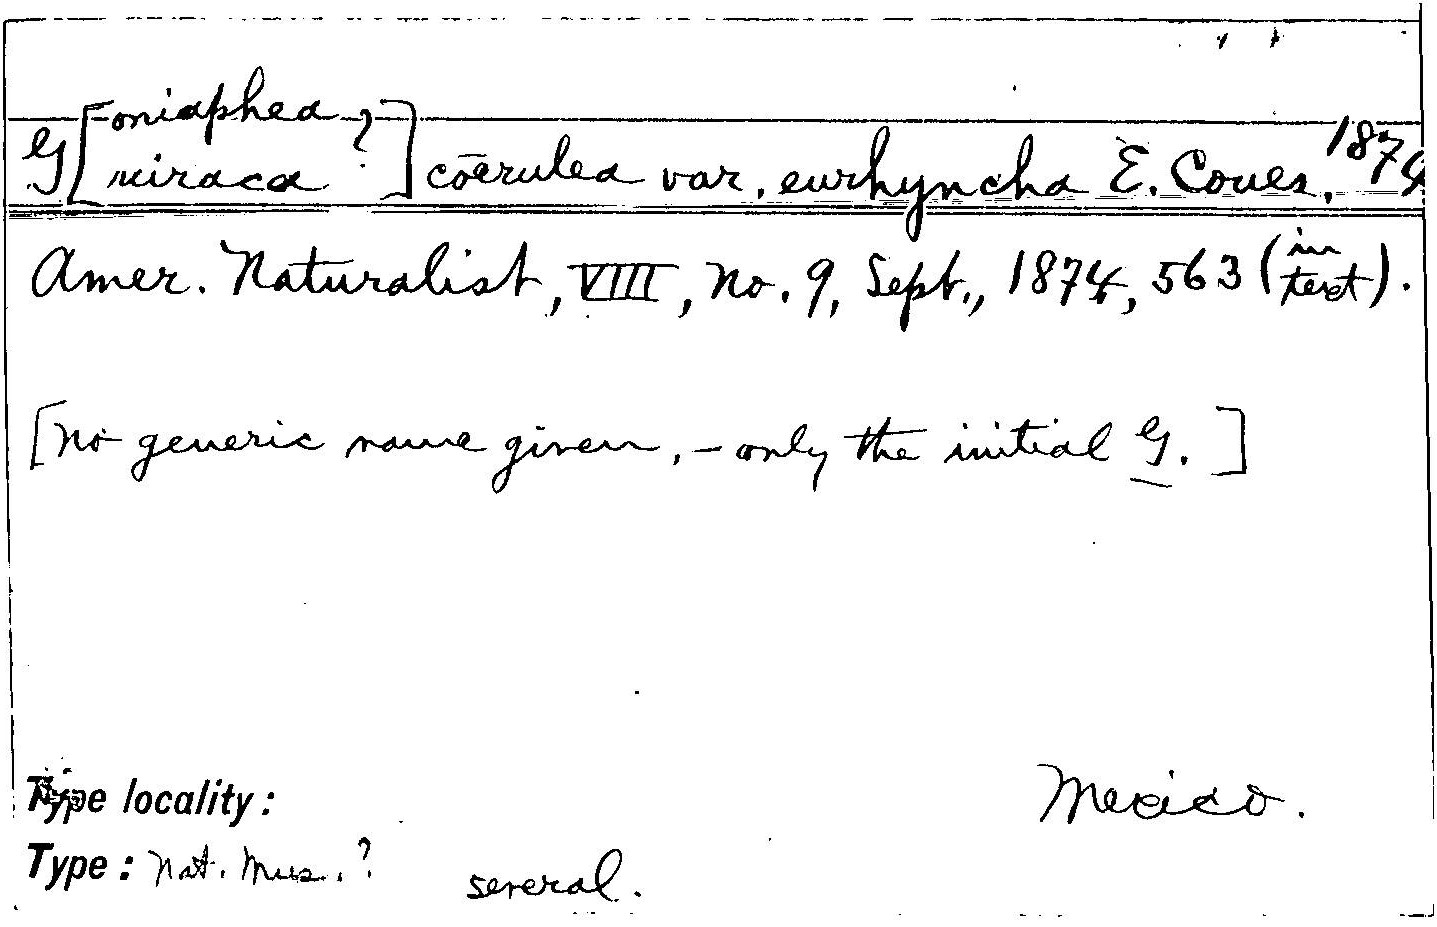 G[oniaphea ?
uiraca] cōerulea var. eurhyncha E. Coues, 1874
Amer. Naturalist, VIII, no. 9, Sept., 1874, 563 (in text).
[No generic name given, - only the initial G.]
Type locality: Mexico.
Type: Nat. Mus.? several.